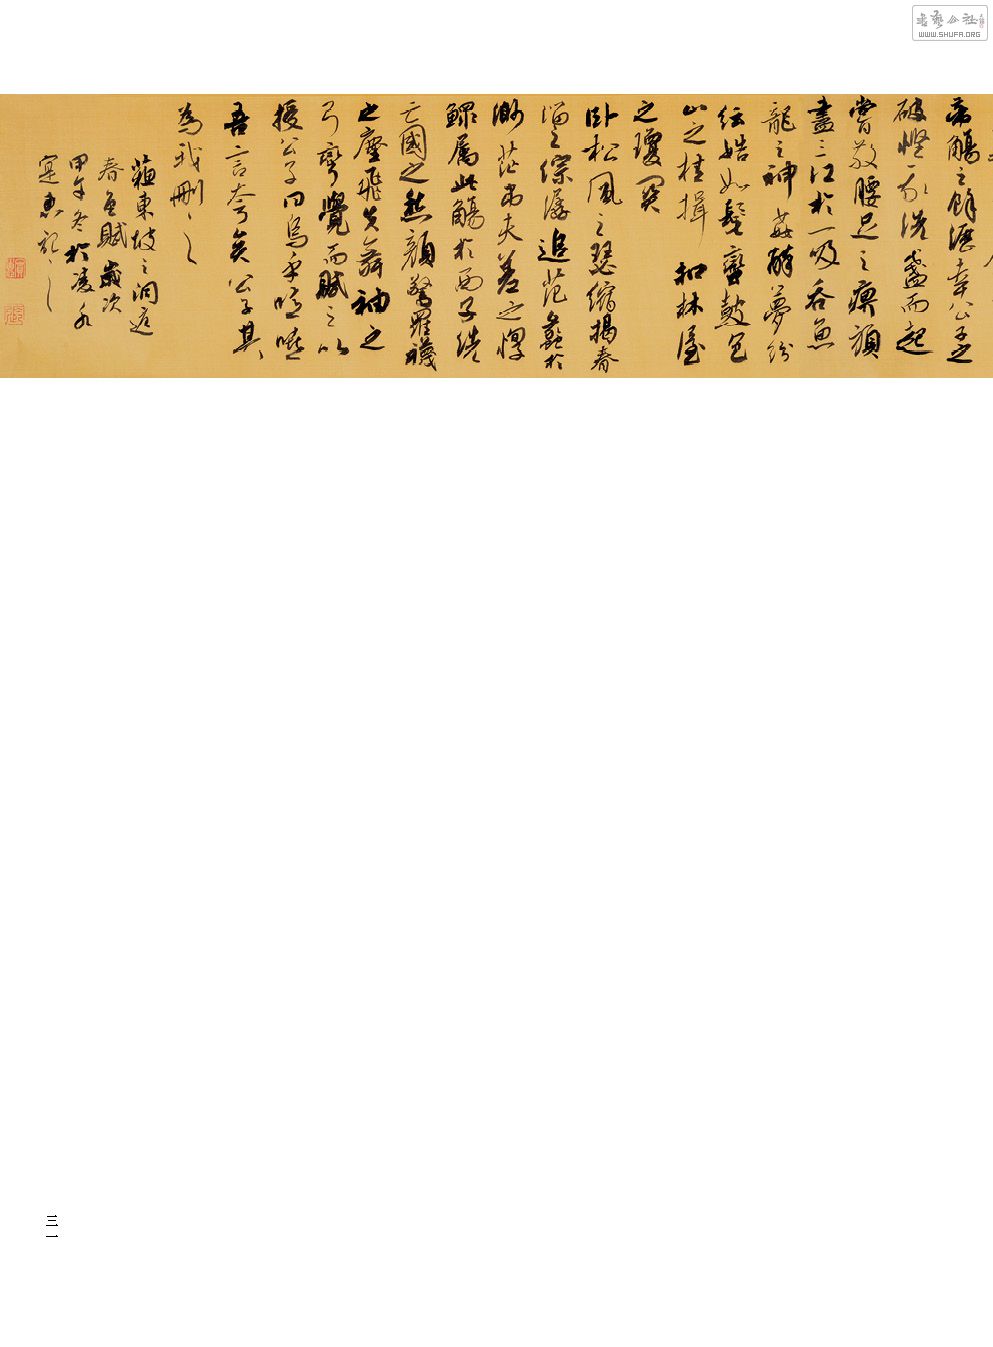 帝觴之餘瀝幸公子之
破慳我洗盞而起
嘗散腰足之痹頑
盡三江於一吸吞魚
龍之神姦醉夢紛
紜始如髦蠻鼓包
山之桂楫扣林屋
之瓊關
臥松風之瑟縮揭春
溜之淙潺追范蠡於
渺茫弔夫差之惸
鰥屬此觴於西子洗
亡國之愁顏驚羅襪
之塵飛失舞袖之
弓彎覺而賦之以
授公子曰烏乎噫嘻
吾言夸矣公子其
為我刪之
蘇東坡之洞庭
春色賦歲次
甲午冬於凌水
記之
三一
WWW.SHUFA.ORG